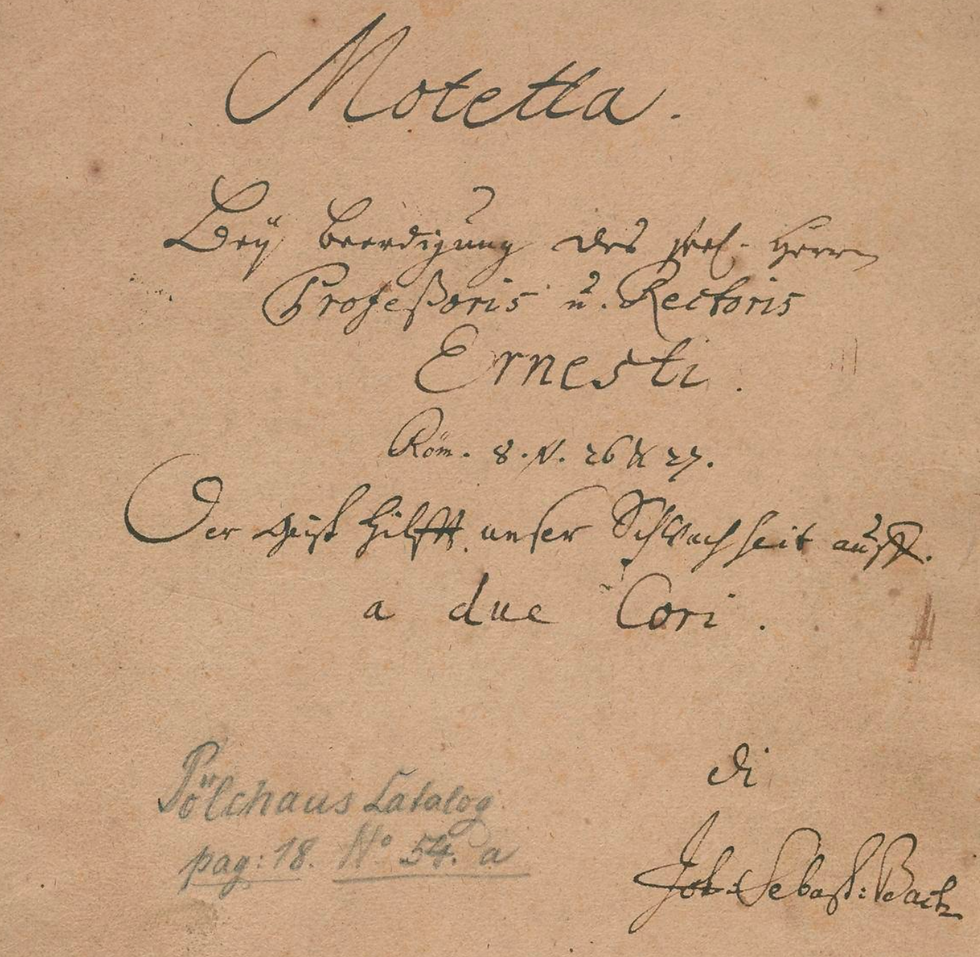 Motetta.
Bey Beerdigung des seel. Herrn
Profeßoris u. Rectoris
Ernesti.
Röm. 8. v. 26 & 27.
Der Geist hilfft unser Schwachheit auff.
a due Cori.
di
Joh. Sebast: Bach
Pölchaus Catalog
pag: 18. No 54. a